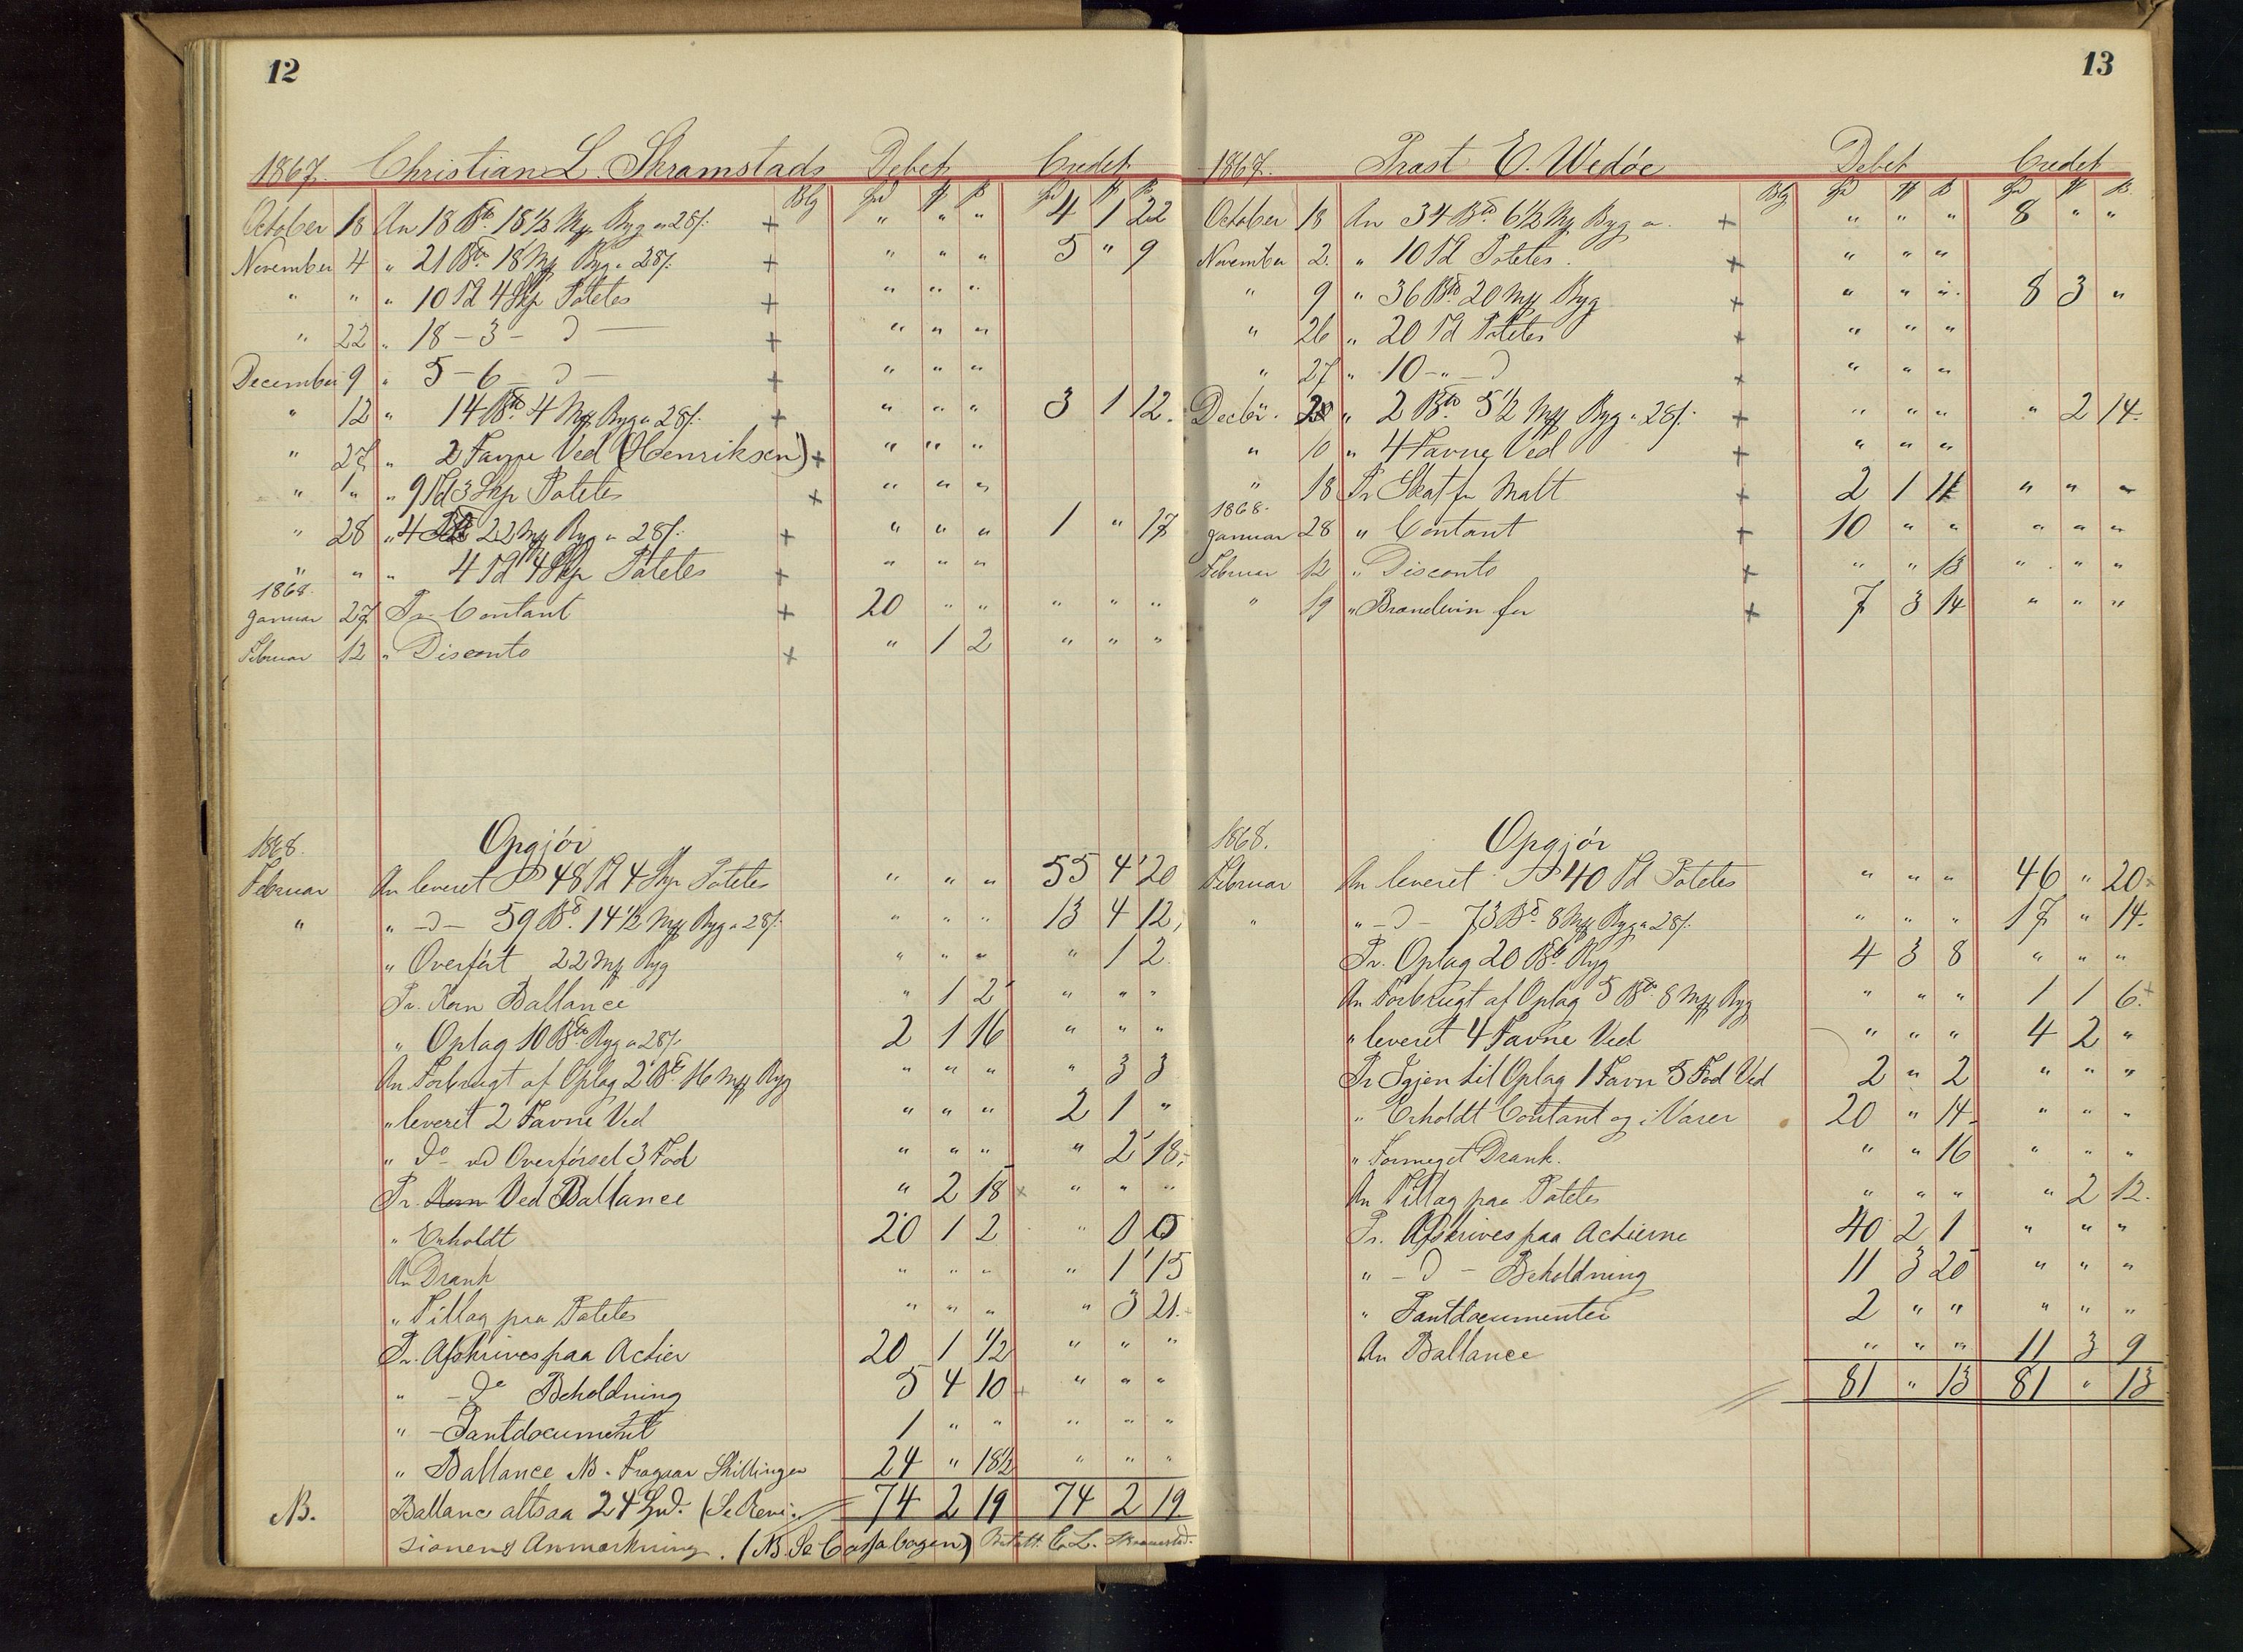 12
1867. Christian L. Skramstads Debet Credet
Blg Spd
October 18 An 18 Btd. 18 1/2 Mrk Byg a 28/: + " " " 4 1 22
November 4 " 21 Btd. 18 Mrk Byg a 28/: + " " " 5 " 9
" " " 10 Td 4 Skp Potetes + " " "
" 22 " 18 - 3 - D - + " " "
December 9 " 5 - 6 - D - + " " "
" 12 " 14 Btd. 4 Mrk Byg a 28/: + " " " 3 1 12.
" 27 " 2 Favne Ved (Henriksen) + " " "
" " " 9 Td 3 Skp Potetes + " " "
" 28 " 4 22 Mrk Byg a 28/: + " " " 1 " 17
" " " 4 Td 4 Skp Potetes + " " "
1868.
Januar 27 Pr Contant + 20 " " " " "
Februar 12 " Disconto + " 1 2 " " "
1868. Opgjör
Februar An leveret 48 Td 4 Skp Potetes " " " 55 4 20
" " - D - 59 Btd. 14 1/2 Mrk Byg a 28/: " " " 13 4 12,
" Overfört 22 Mrk Byg " " " " 1 2.
Pr. Korn Ballance " 1 2 " " "
" Oplag 10 Btd. Byg a 28/: 2 1 16 " " "
An Forbrugt af Oplag 2 Btd 16 Mrk Byg " " " " 3 3
" leveret 2 Favne Ved " " " 2 1 "
" Do ved Overförsel 3 Fod " " " " 2 18.
Pr. Korn Ved Ballance " 2 18 " " "
" Erholdt 20 1 2 " 0 0
An Drank " " " " 1 15
" Tillag paa Potetes " " " " 3 21.
Pr. Afskrives paa Actier 20 1 1/2 " " "
" - Do Beholdning 5 4 10 " " "
" - Pantdocument 1 " " " " "
" Ballance NB. Fragaar Skillingen 24 " 18 1/2 " " "
NB. Ballance altsaa 24 Spd. (Se Revi- 74 2 19 74 2 19
sionens Anmærkning. (NB. Se Cassabogen) Betalt. C. L. Skramstad.
13
1867. Trast E. Wedöe Debet Credet
Blg Spd
October 18 An 34 Btd. 6 1/2 Mrk Byg a. + " " " 8 " "
November 2. " 10 Td Potetes. + " " "
" 9 " 36 Btd. 20 Mrk Byg + " " " 8 3 "
" 26 " 20 Td Potetes + " " "
" 27 " 10 - " - D + " " "
Decbr. " 2 Btd. 5 1/2 Mrk Byg a 28/: + " " " " 2 14.
" 10 " 4 Favne Ved + " " "
" 18 Pr Skat for Malt + 2 1 " " "
1868.
Januar 28 " Contant + 10 " " " " "
Februar 12 " Disconto + " " 13 " " "
" 19 " Brændevin for + 7 3 14 " " "
1868. Opgjör
Februar An leveret 40 Td Potetes " " " 46 " 20
" " - D - 73 Btd. 8 Mrk Byg a 28/: " " " 17 " 14.
Pr. Oplag 20 Btd. Byg 4 3 8 " " "
An Forbrugt af Oplag 5 Btd. 8 Mrk Byg " " " 1 1 6.
" leveret 4 Favne Ved " " " 4 2 "
Pr Igjen til Oplag 1 Favn 5 Fod Ved 2 " 2 " " "
" Erholdt Contant og i Varer 20 " 14 " " "
" Formeget Drank. " " 16 " " "
An Tillag paa Potetes " " " " 2 12.
Pr. Afskrives paa Actierne 40 2 1 " " "
" - D - Beholdning 11 3 20 " " "
" Pantdocumenter 2 " " " " "
An Ballance " " " 11 3 9
81 " 13 81 " 13